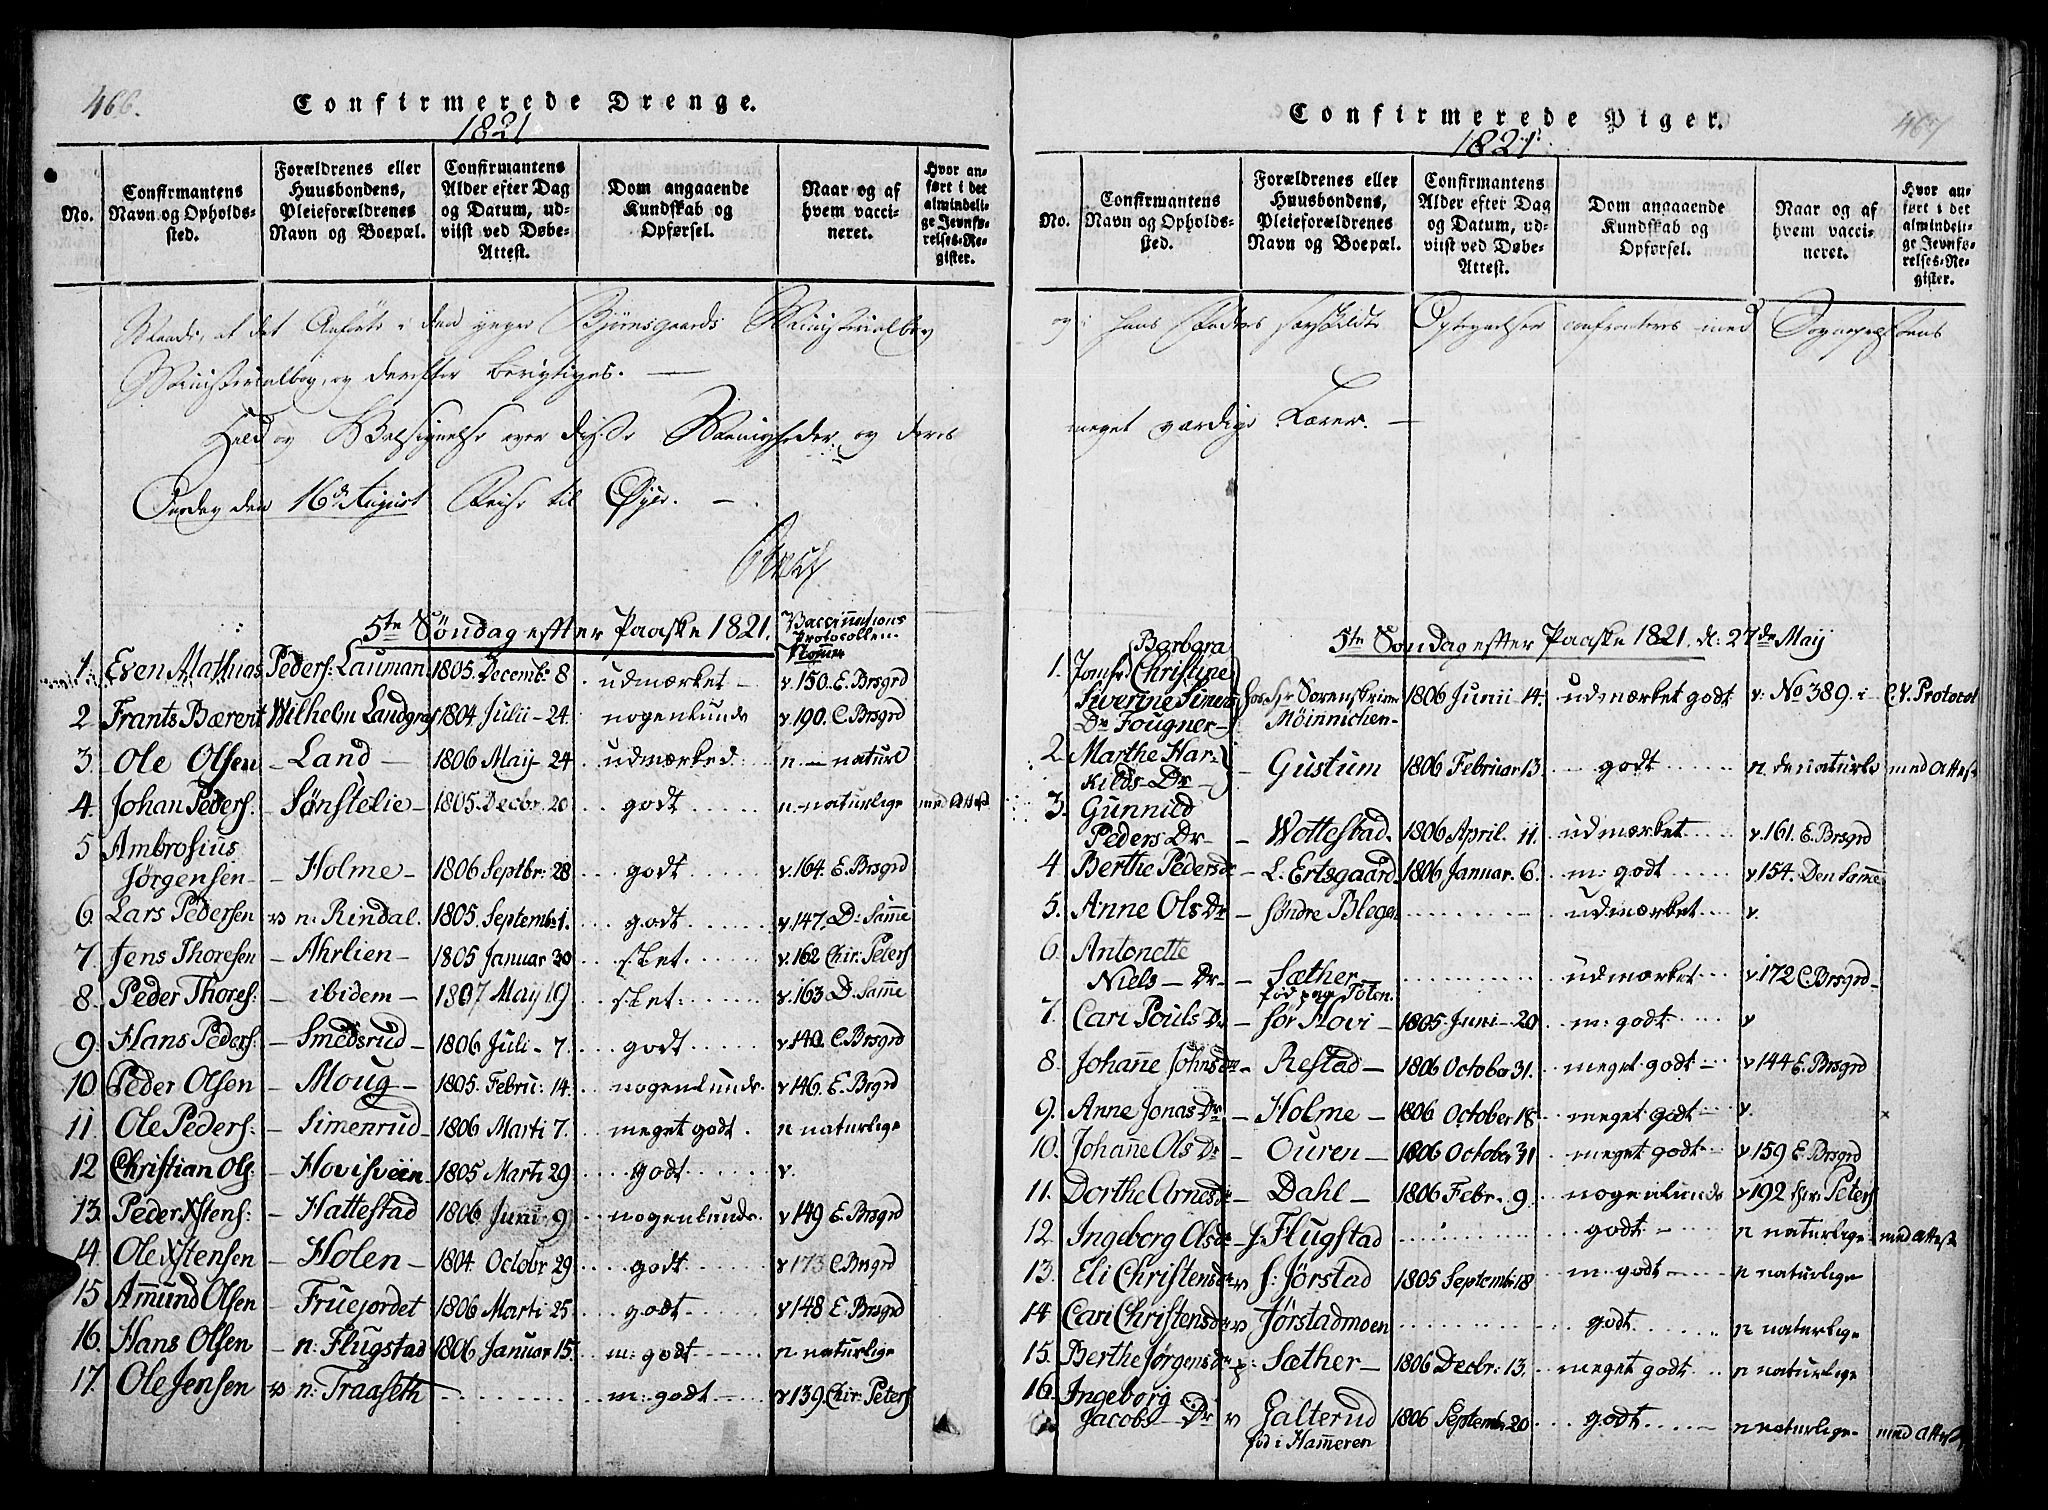 466.
Confirmerede Drenge.
1821
No.
Confirmantens Navn og Opholds-sted.
Forældrenes eller Huusbondens, Pleieforældrenes Navn og Boepæl.
Confirmantens Alder efter Dag og Datum, ud-viist ved Døbe-Attest.
Dom angaaende Kundskab og Opførsel.
Naar og af hvem vacci-neret.
Hvor an-ført i det almindeli-ge Jevnfø-relses-Re-gister.
Maade, at det Anførte i den yngre Bjørnsgaards Ministerialbog
Ministerialbog, og derefter berigtiges. —
Held og Velsignelse over disse Menigheder og deres
den 16de August Reise til Øyer. —
5te Søndag efter Paaske 1821. Vaccinations Protocollen
1. Even Mathias Peders: Lauman 1805. Decembr 8 udmærket – v. 150. E. Brsgrd
2 Frants Bærent Wilhelm Landgraf 1804. Julii – 24. nogenlunde v. 190. C. Brsgrd
3. Ole Olsen – Land – 1806 May – 24 udmærked n. – naturl
4. Johan Peders. – Sønstelie – 1805. Decbr. 20 godt n – naturlige med Attest
5 Ambrosius
Jørgensen – – Holme – 1806 Septbr: 28 godt v. 164. E. Brsgrd
6. Lars Pedersen v n: Rindal. 1805. Septembr 1. godt v. 147. D: Samme
7. Jens Thoresen – Ahrlien – 1805 Januar 30 slet. v. 162 Chir. Peters
8. Peder Thores: – ibidem – 1807 Maij 19 slet: v. 163 D. Samme
9. Hans Peders: – Smedsrud – 1806 Juli – 7. godt v. 140. C. Brsgrd
10. Peder Olsen – Moug – 1805. Febru: 14. nogenlunde. v. 146. E. Brgrd
11. Ole Peders: – Simenrud – 1806 Marti 7. meget godt. n naturlige
12 Christian Ols: – Hovisveen 1805 Marti 29 godt v.
13. Peder Xstens: – Hattestad 1806 Juni 9 nogenlunde. v 149 E. Brsgrd
14. Ole Xstensen – Holen – 1804. Octobr 29 godt v 173 C. Brsgrd
15. Amund Olsen – Fruejordet 1806 Marti 25 godt v 148 E. Brsgrd
16. Hans Olsen – n: Flugstad 1806 Januar 15. m: godt n naturlige
17. Ole Jensen v n: Traaseth m: godt – v. 139. Chir. Peters
467
Confirmerede Piger.
1821.
No.
Confirmantens Navn og Opholds-sted.
Forældrenes eller Huusbondens, Pleieforældrenes Navn og Boepæl.
Confirmantens Alder efter Dag og Datum, ud-viist ved Døbe-Attest.
Dom angaaende Kundskab og Opførsel.
Naar og af hvem vacci-neret.
Hvor an-ført i det almindeli-ge Jevnfø-relses-Re-gister.
og i hans Faders særskildte Optegnelser confronteres med Sognepræstens
meget værdige Lærer. —
5te Søndag efter Paaske 1821. d: 27de Maij
Barbara
1. Jomfr. Christine
Siverine Simens hos Hr Sorenskriver 1806 Junii 14. udmærket godt v. No 389. i C. V. Protocol
Dr Fougner – Möinnichen –
2. Marthe Har
kilds – Dr – Gustum 1806 Februar 13. – godt n. de naturle med Attest
3. Gunnild
Peders Dr – – Wottestad. 1806 April. 11. udmærket v. 161. E. Brsgrd
4 Berthe Pedersdr – L. Ertsgaard 1806 Januar. 6. m: godt v 154. Den Samme
5. Anne Ols Dr – Søndre Blegen udmærket v.
6. Antonette
Niels – Dr – – Sæther udmærket v 172 C. Brsgrd –
fød paa Toten.
7. Cari Pouls Dr – Sør Hovi – 1805. Juni – 20 m: godt v
8. Johanne Johnsdr – Restad – 1806 October 31. meget godt v 144 E. Brsgrd
9. Anne Jonas Dr – Holme – 1806 October 18 meget godt v.
10. Johanne Ols Dr – Ouren – 1806 October 31 meget godt v 159 E. Brsgrd
11. Dorthe Arnesdr – Dahl – 1806 Febr. 9. nogenlunde v 192 Chir. Peters
12. Ingeborg Olsdr – s. Flugstad godt n naturlige med Attest
13. Eli Christensdr v s: Jørstad 1805 Septembr 18 m: godt n naturlige
14. Cari Christensdr v Jørstadmoen godt n naturlige
15. Berthe Jørgensdr Sæther – 1806 Decbr: 13. meget godt n naturlige
16. Ingeborg
Jacobs – Dr v Galterud 1806 Septembr 20 godt n naturlige – med Attest
fød i Hammeren